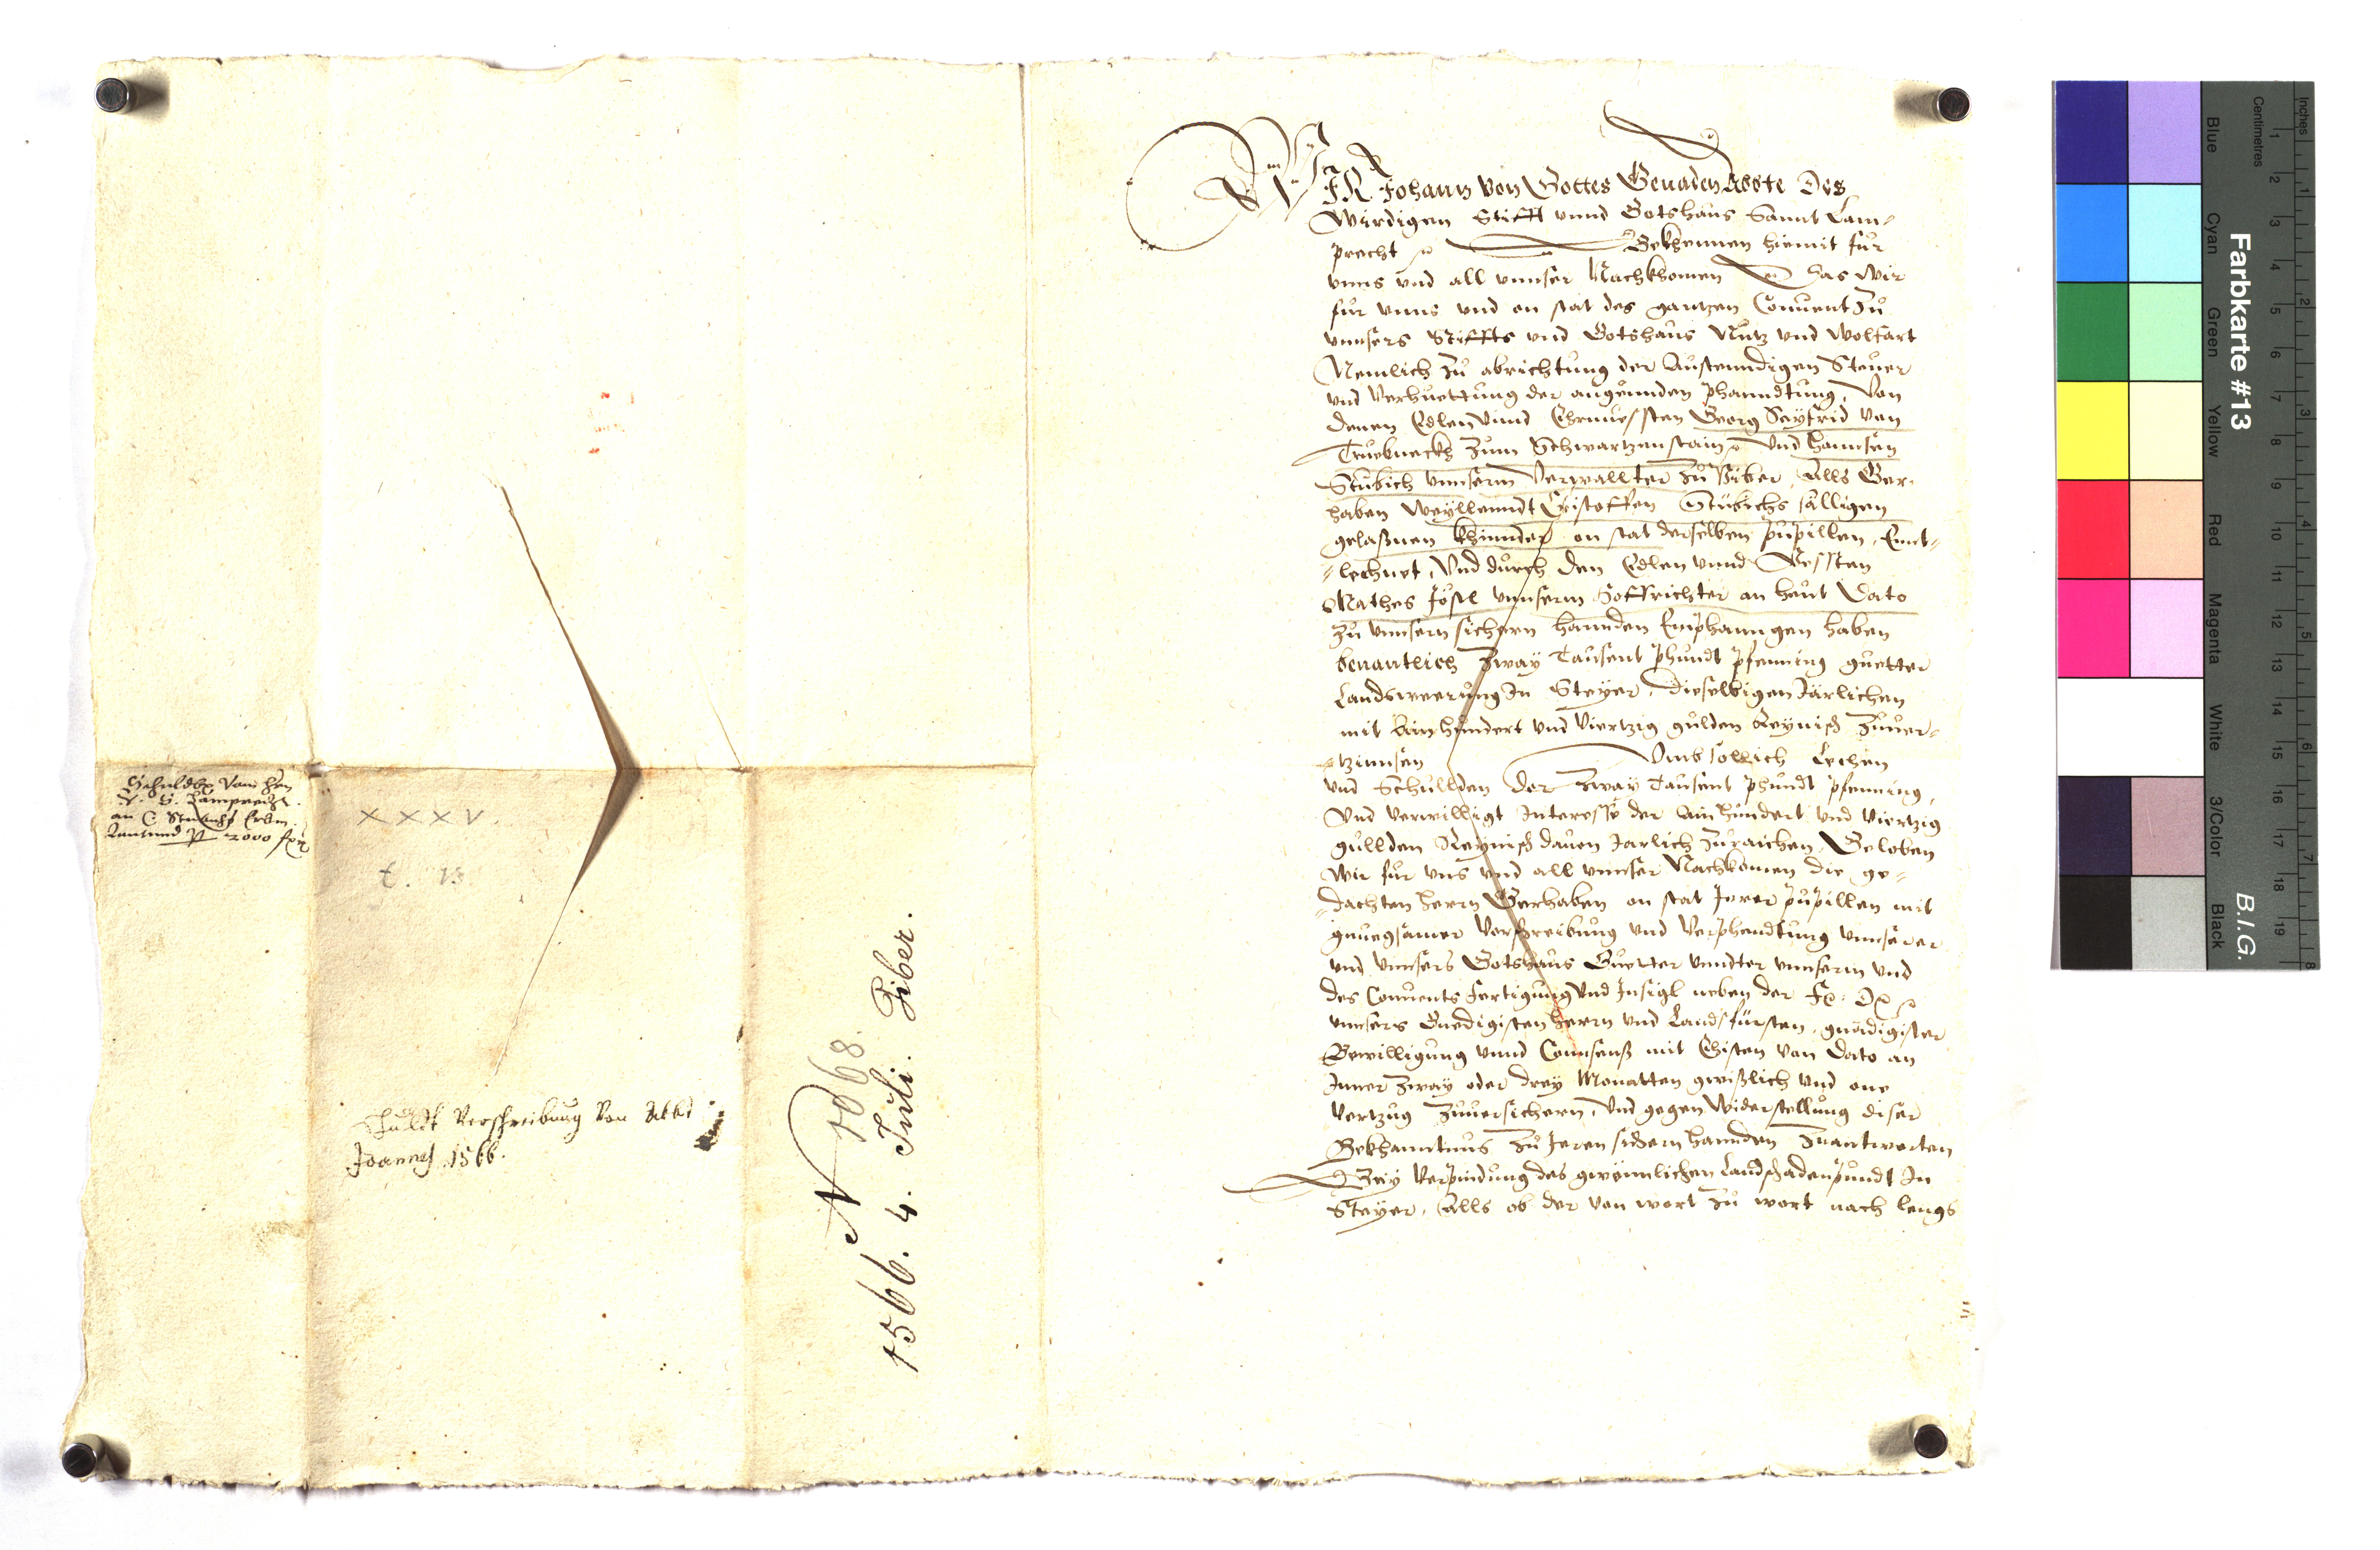 Schuldbr. vom Hrn
A. S. Lamprecht
an C. Stübichs Erbn.
lautund p 2000 f
XXXV.
t. 13
Schuldt Verschreibung Von Abbt
Joannes 1566.
N 1068.
1566. 4. Juli. Piber.
WIR Johann von Gottes Genaden Abbte Des
Wirdigen Stifft vnnd Gotshaus Sannt Lam-
precht Bekhennen hiemit für
vnns vnd all vnnser Nachkhomen das Wir
für vnns vnd an stat des gantzen Conuent Zů
vnnsers Stiffts vnd Gotshaus Nutz vnd Wolfart
Nemlich Zů abrichtung der Austenndigen Steuer
vnd Verhuettung der angeunden phanndtung, Von
denen Edlen vnnd Ehrnuessten Georg Seyfrid von
Trüebneckh Zum Schwartzenstain vnd Hannsen
Stübich vnnserm Verwallter Zů Piber, Alls Ger-
haben Weyllenndt Cristoffen Stübichs sälligen
gelaßnen Khinnder an stat derselben pupillen, Ennt-
lechnet, Vnd durch den Edlen vnnd Vessten
Mathes Jöstl vnnserm Hoffrichter an heut Dato
Zů vnnsern sichern hannden Emphanngen haben
benantlich Zway Tausent phundt pfenning guetter
Landswerung In Steyer, dieselbigen Järlichen
mit Ain hundert vnd Viertzig gulden Reynisch Zuuer-
tzinnsen Vmb sollich Lechen
vnd Schullden der Zway Tausent phundt pfenning,
Vnd verwilligt Interesse der Ain hundert vnd Viertzig
gullden Reynisch dauon Jarlich Zuraichen, Geloben
Wir für vns vnd all vnnser Nachkomen die ge-
dachten herrn Gerhaben an stat Jerer pupillen mit
gnuegsamer Verschreibung vnd Verphendtung vnnserer
vnd vnnsers Gotshaus Güetter vnndter vnnserm vnd
des Conuents Fertigung vnd Insigl neben der Fr: Dr
vnnsers Gnedigisten herrn vnd Landsfürsten, gnädigister
Bewilligung vnnd Connsens mit Ehisten von Dato an
Inner Zway oder drey Monatten gwißlich vnd one
Vertzug Zuuersichern, Vnd gegen Widerstellung diser
Bekhanntnus Zů Jeren sichern hannden Zuantworten
Bey Verpindung des gwonnlichen Landschadenpundt In
Steyer, Alls ob der von wort Zů wort nach lengs